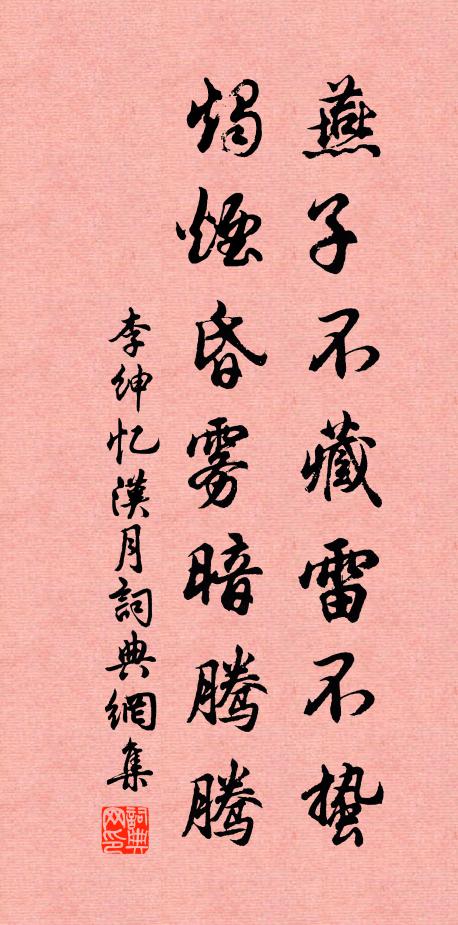 燕子不藏雷不蛰
烛煙昏雾暗腾腾
李绅忆漢月詞典網集
詞典网印